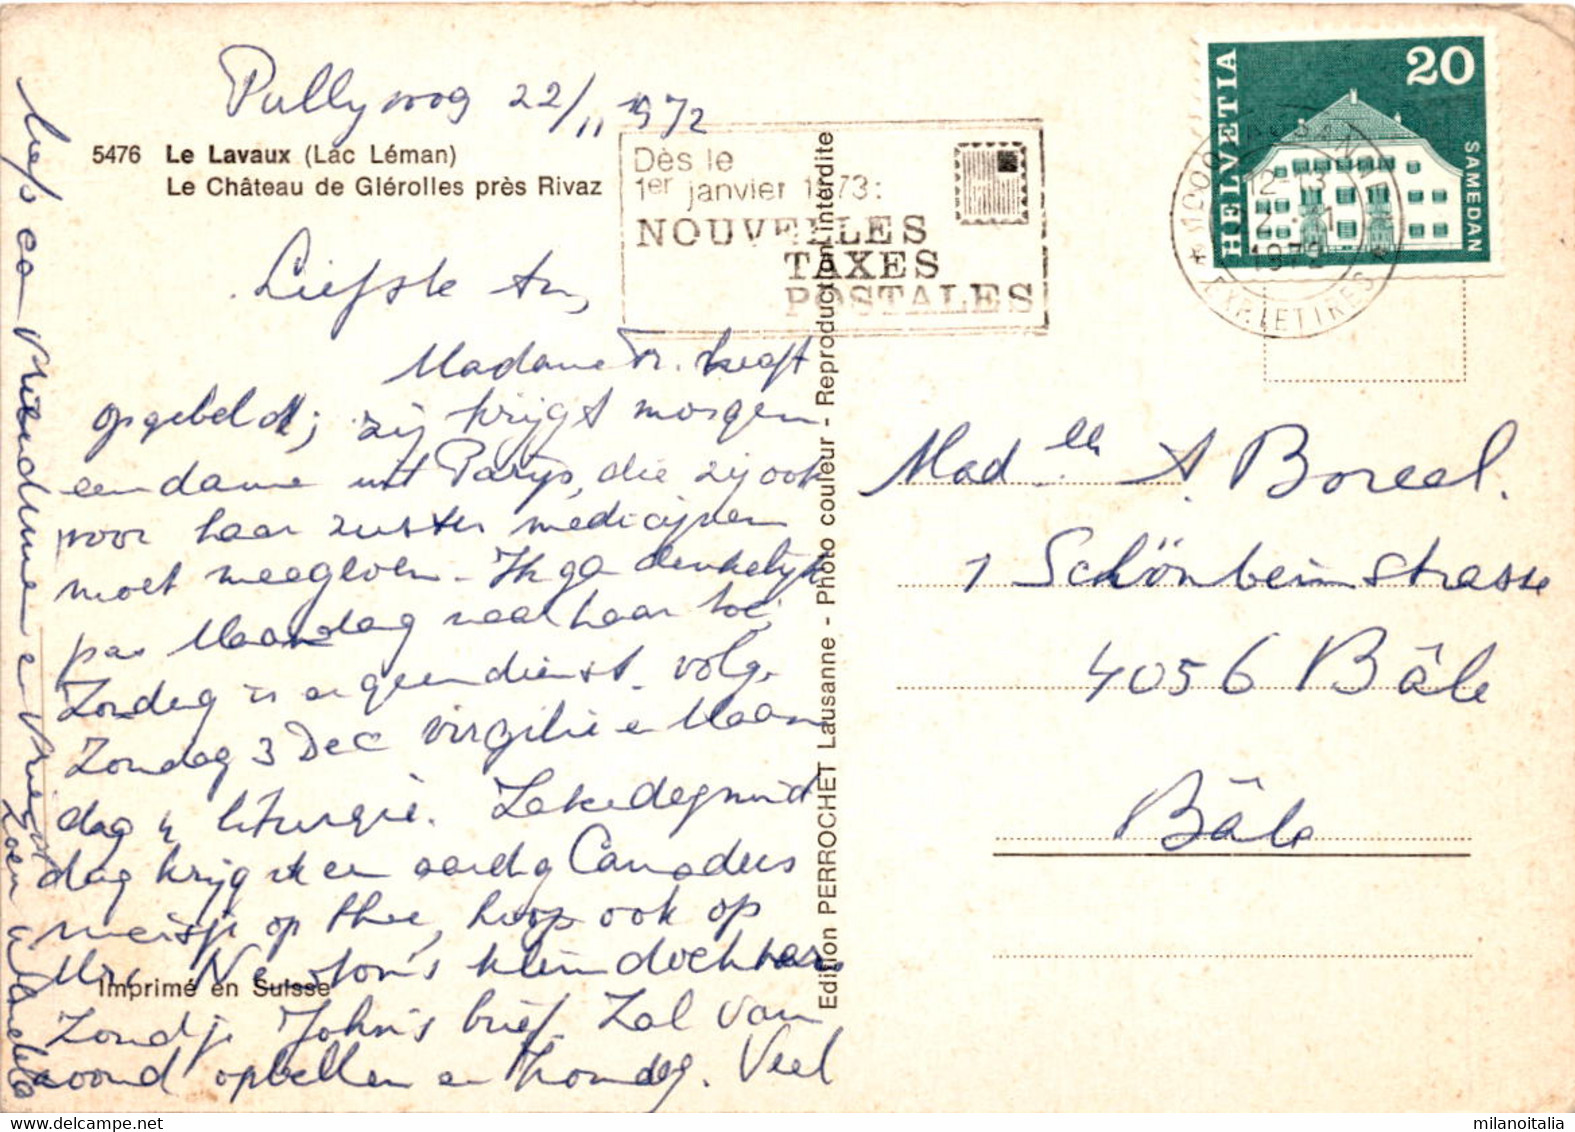 Pully 22/11 1972
5476 Le Lavaux (Lac Léman)
Le Château de Glérolles près Rivaz
Dès le
1er janvier 1973:
NOUVELLES
TAXES
POSTALES
HELVETIA
20
SAMEDAN
1000 LAUSANNE
12-13
1972
EXP. LETTRES
Liefste An,
Madame heeft
opgebeld; zij krijgt morgen
een dame uit Parijs, die zij ook
voor haar zuster medicijnen
moet meegeven - Ik ga denkelijk
pas Maandag naar haar toe,
Zondag is er geen dienst. volg.
Zondag 3 Dec virgilie en Maan
dag liturgie. Zaterdagmid
dag krijg ik een aardig Canadees
meisje op thee, hoop ook op
Mrs Newton's kleindochters
Zond je John's brief. Zal van
avond opbellen en Zondag. Veel
liefs en
Imprimé en Suisse
Edition PERROCHET Lausanne - Photo couleur - Reproduction interdite
Madelle A. Boreel.
1 Schönbeinstrasse
4056 Bâle
Bâle
milanoitalia